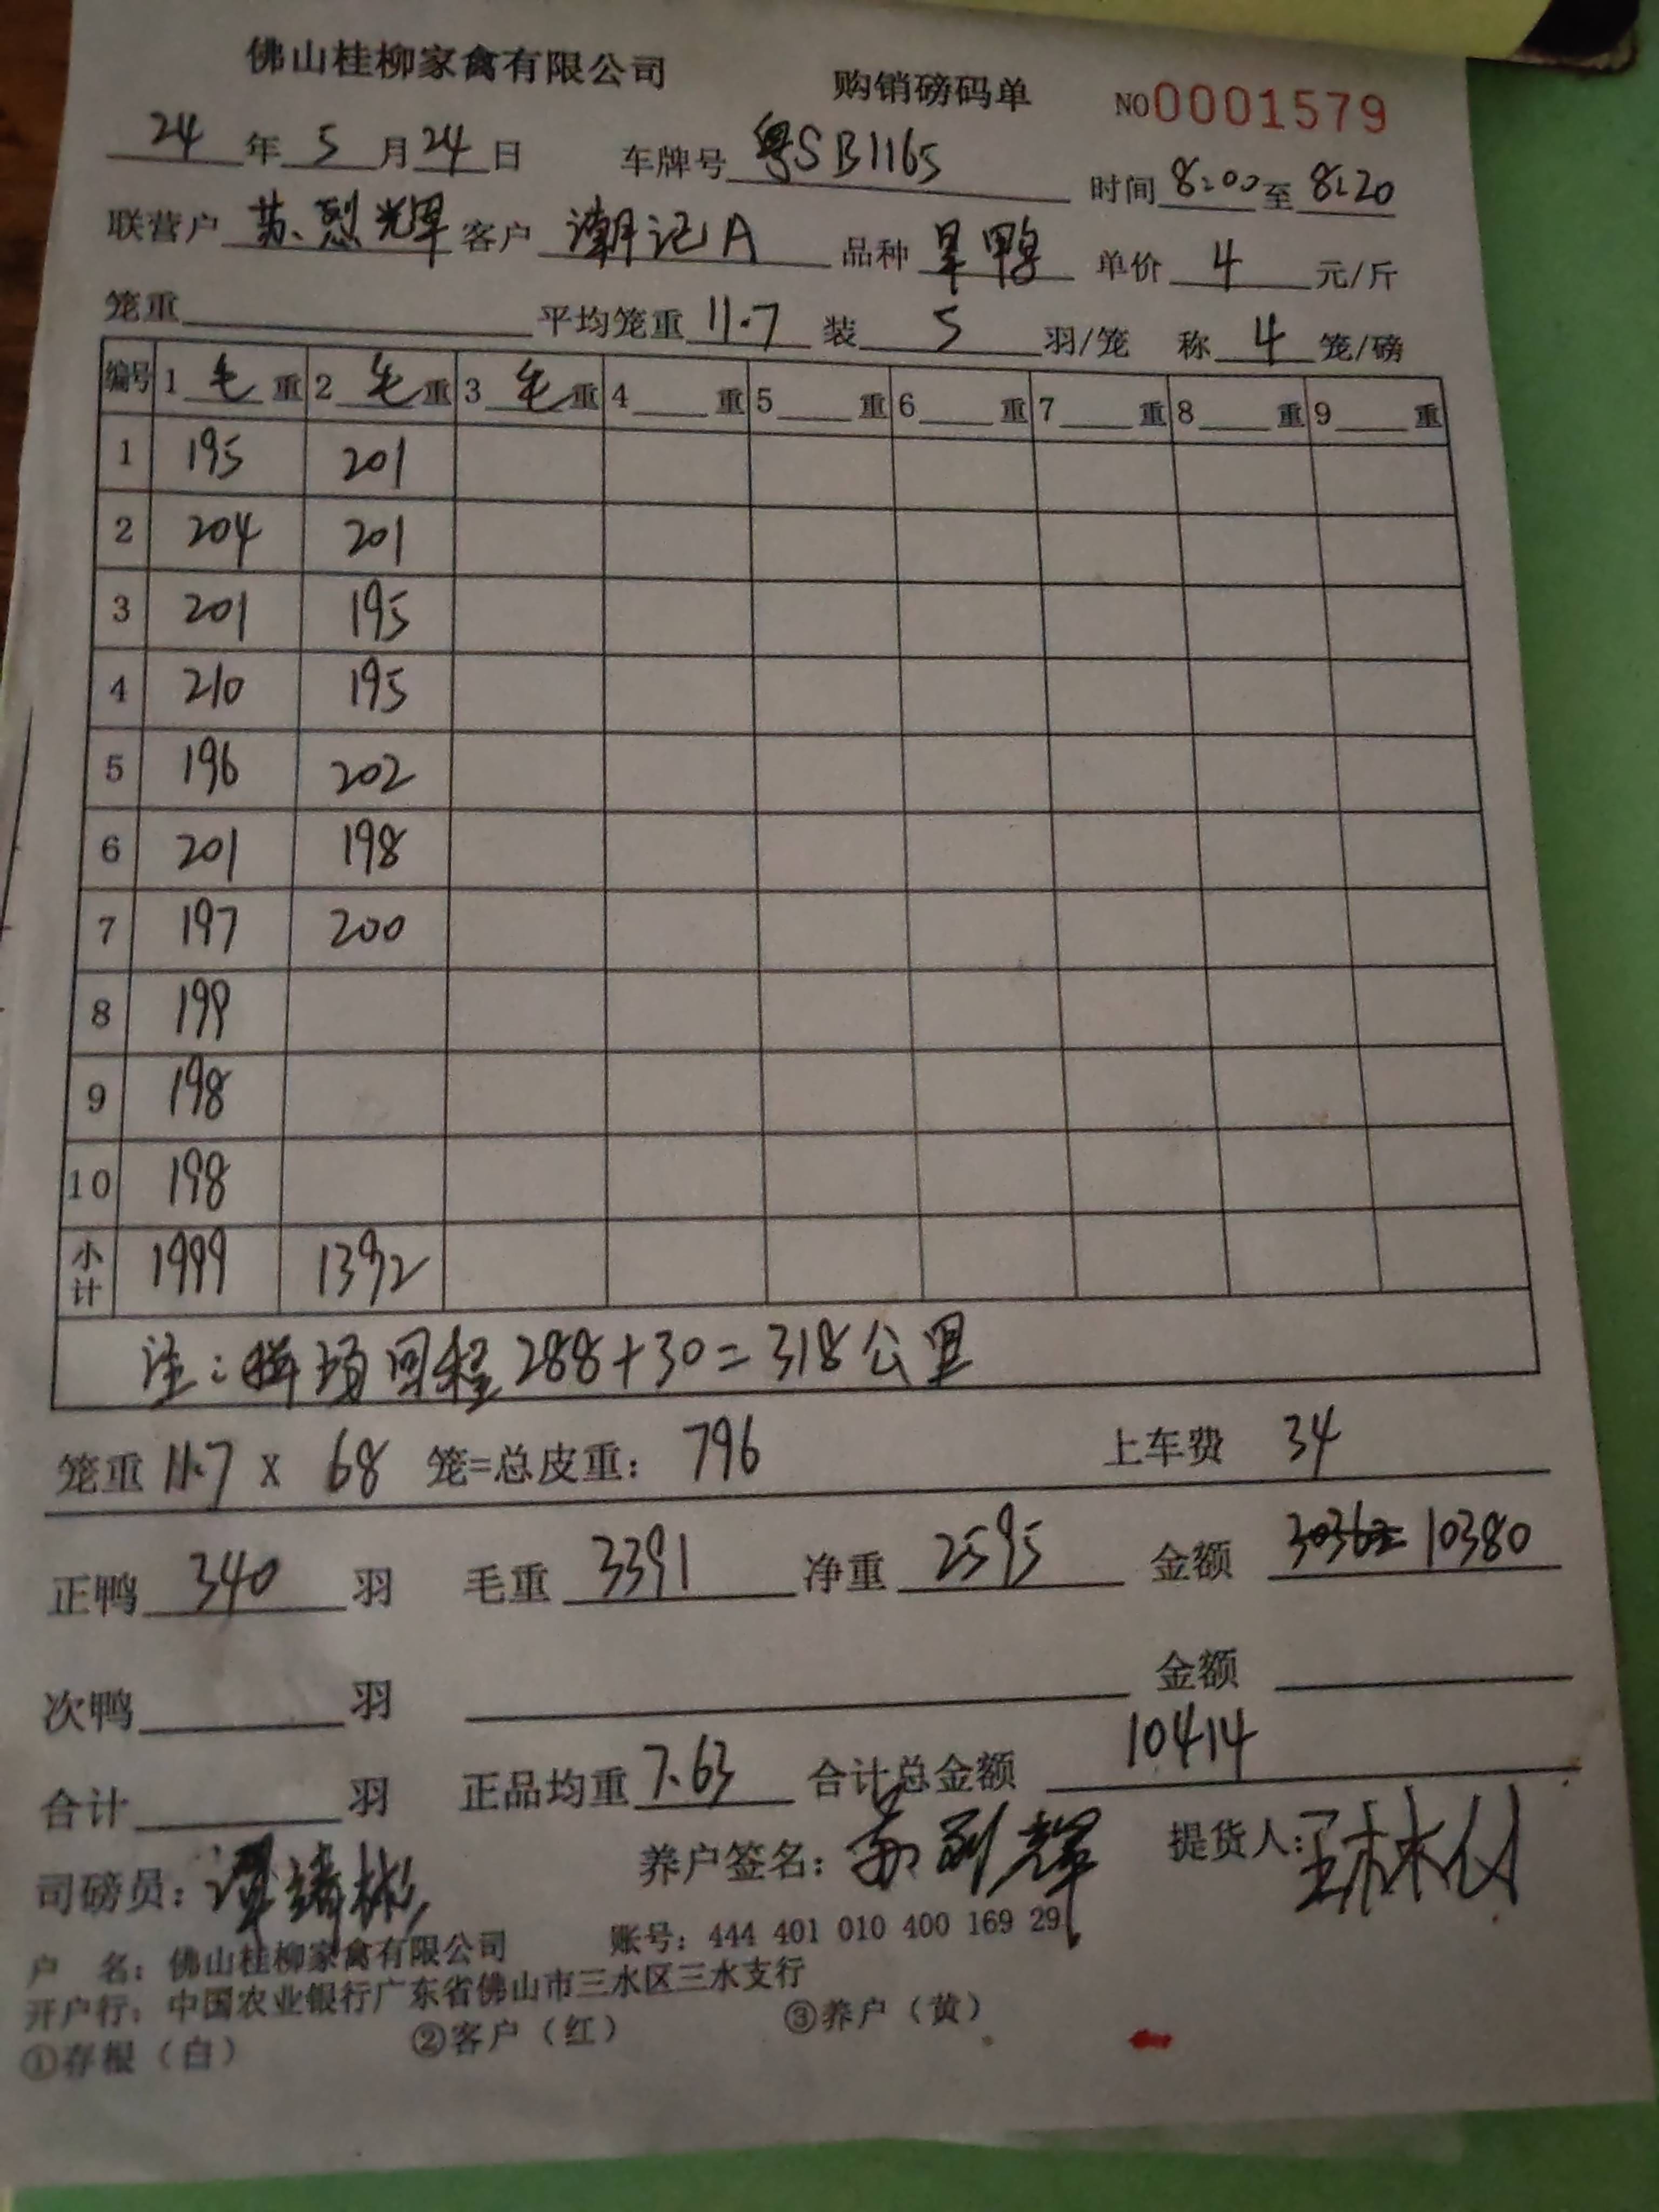 佛山桂柳家禽有限公司 购销磅码单 NO0001579
24年5月24日 车牌号 粤SB1165 时间 8:00至8:20
联营户 苏烈辉 客户 潮记A 品种 旱鸭 单价 4 元/斤
笼重 平均笼重 11.7 装 5 羽/笼 称 4 笼/磅
编号 1 毛 重 2 毛 重 3 毛 重 4 重 5 重 6 重 7 重 8 重 9 重
1 195 201
2 204 201
3 201 195
4 210 195
5 196 202
6 201 198
7 197 200
8 199
9 198
10 198
小计 1999 1392
注:拼场回程288+30=318公里
笼重 11.7 x 68 笼=总皮重: 796 上车费 34
正鸭 340 羽 毛重 3391 净重 2595 金额 10380
次鸭 羽 金额
合计 羽 正品均重 7.63 合计总金额 10414
司磅员: 养户签名: 苏烈辉 提货人:
户 名: 佛山桂柳家禽有限公司 账号: 444 401 010 400 169 29
开户行: 中国农业银行广东省佛山市三水区三水支行
①存根(白) ②客户(红) ③养户(黄)